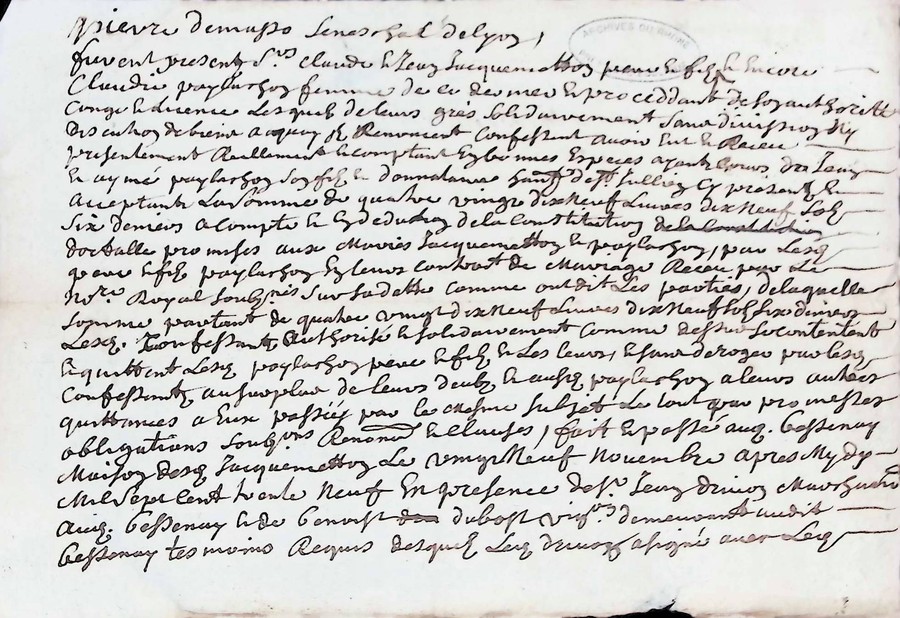 pierre demasso Seneschal delyon,
ARCHIVES DU RHONE
furent present Srs claude et Jean Jacquemetton pere et fils et Encore
Claudie paylachon femme de ce dernier et proceddant de son authorité
Conge et licence Lesquels de leurs grés solidairement Sans division ny
discution de biens a quoy ils Renoncent Confessent avoir Eut et Receu
presentement Reellement et comptant En bonnes Especes ayant cours de Jean
Et aymé paylachon son fils et donnataire de St Jullien Cy present et
acceptant La Somme de quatre vingt dix Neuf Livres dix Neuf Sols
Six deniers a compte et En deduction de la Constitution de la Constitution
dottalle promises aux Mariés Jacquemetton et paylachon, par Lesq.
pere et fils paylachon En leurs contract de Mariage Receu par Le
Nore. Royal Soubsnés Sur Sa datte comme ont dit Les parties, de laquelle
Somme partant de quatre vingt dix Neuf Livres dix Neuf Sols Six deniers
Lesq. Confessants Authorisé et Solidairement Comme dessus Se contentent
Et quittent Lesq. paylachon pere et fils et Les leurs, et sans deroger par lesq.
Confessants au surplus de leurs deubs et ausq. paylachon a leurs autres
quittances a Eux passées par le mesme Subjet Le tout par promesses
obligations Soubsons Renonns. et Clauses, fait et passé aud. Bessenay
Maison desd. Jacquemetton Le vingt Neuf Novembre apres Mydy
Mil Sept Cent trente Neuf En presence de Sr. Jean Marchand
aud. Bessenay et de Benoist dubost vigon. demeurant audit
Bessenay tesmoins Requis desquels Led. a signé avec Lesd.